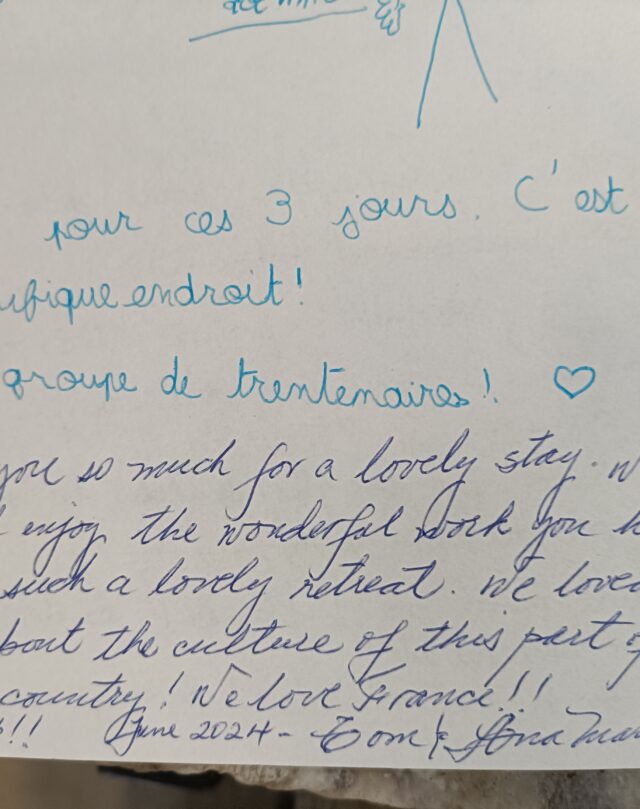 pour ces 3 jours. C'est
ifique endroit!
groupe de trentenaires! ♡
you so much for a lovely stay. W
enjoy the wonderful work you h
such a lovely retreat. We loved
bout the culture of this part of
country! We love France!!!
!! June 2024 - Tom & Ana Mar